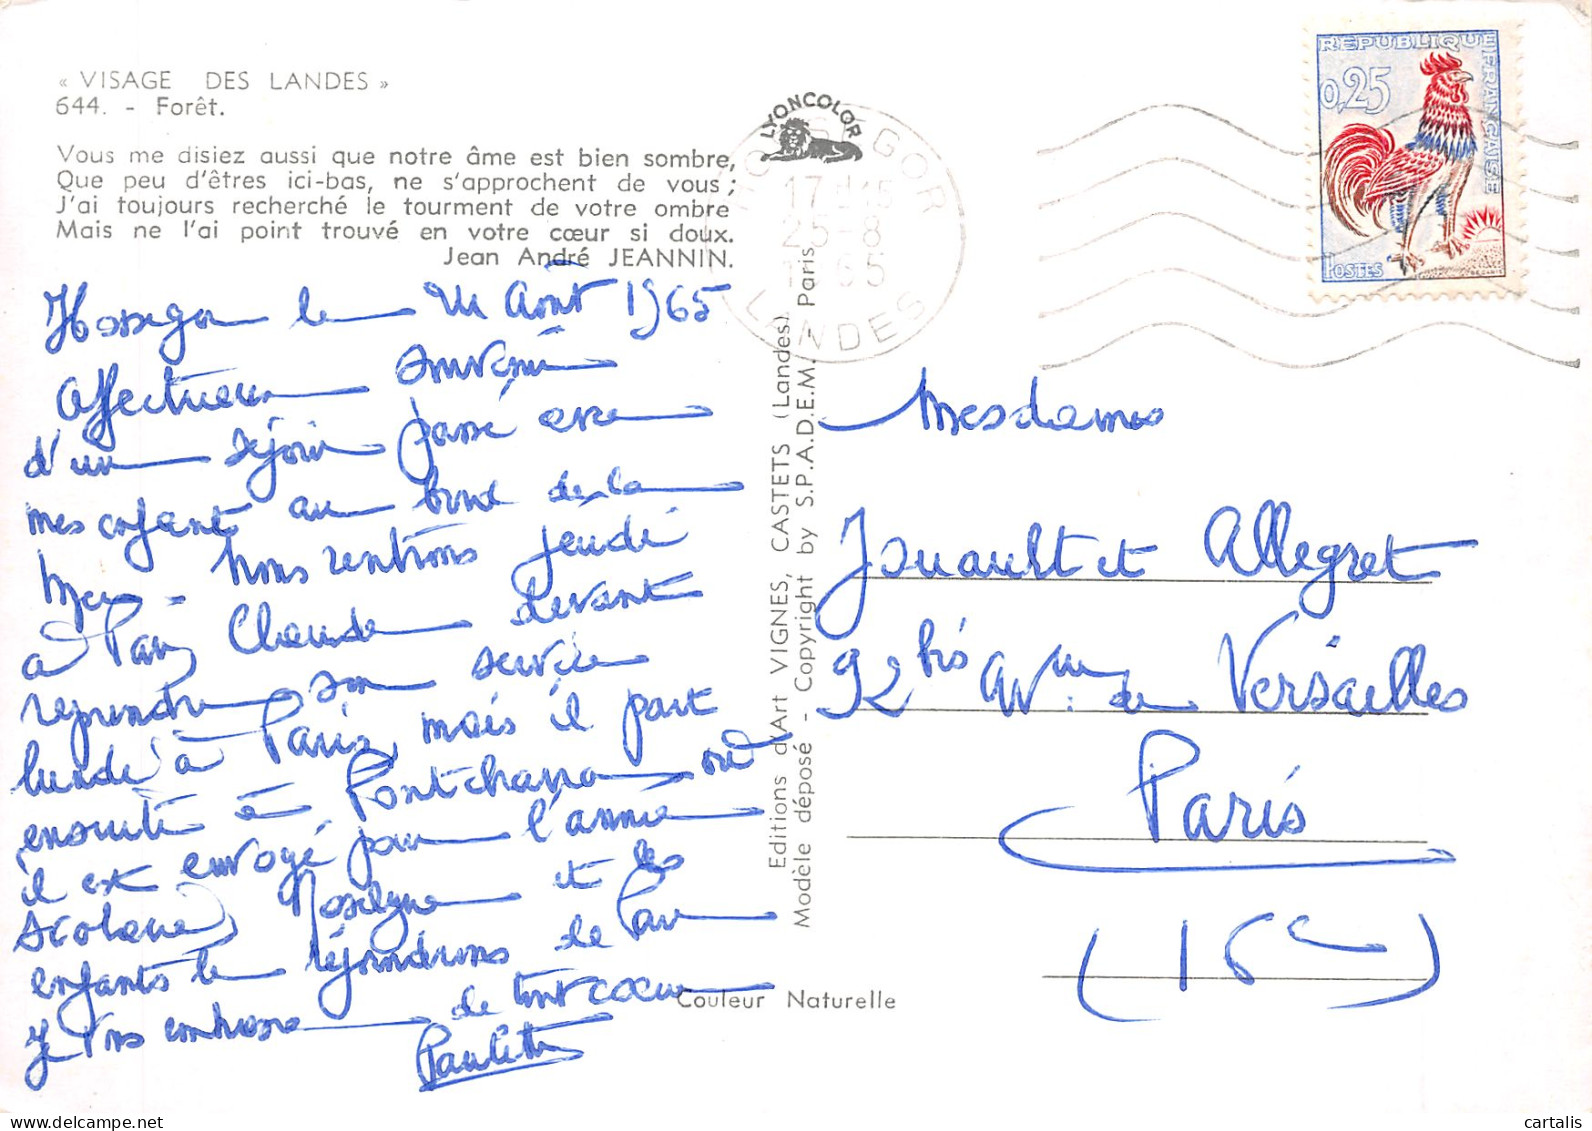 « VISAGE DES LANDES »
644. - Forêt.
Vous me disiez aussi que notre âme est bien sombre,
Que peu d'êtres ici-bas, ne s'approchent de vous ;
J'ai toujours recherché le tourment de votre ombre
Mais ne l'ai point trouvé en votre cœur si doux.
Jean André JEANNIN.
Hossegor le 24 Août 1965
Affectueux souvenir
d'un séjour passé avec
mes enfants au bord de la
Mer. Nous rentrons jeudi
à Paris Claude devant
reprendre son service
lundi à Paris, mais il part
ensuite à Pontcharra où
il est envoyé pour l'année
scolaire, et les
enfants le rejoindrons de Pau
Je vous embrasse de tout cœur
Paulette
LYONCOLOR
HOSSEGOR
17 H 15
25-8
1965
LANDES
REPUBLIQUE FRANÇAISE
0,25
POSTES
DECARIS
Editions d'Art VIGNES, CASTETS (Landes)
Modèle déposé - Copyright by S.P.A.D.E.M. - Paris
Couleur Naturelle
Mesdames
Jouault et Allegret
92 bis Av. de Versailles
Paris
(16e)
cartalis
delcampe.net